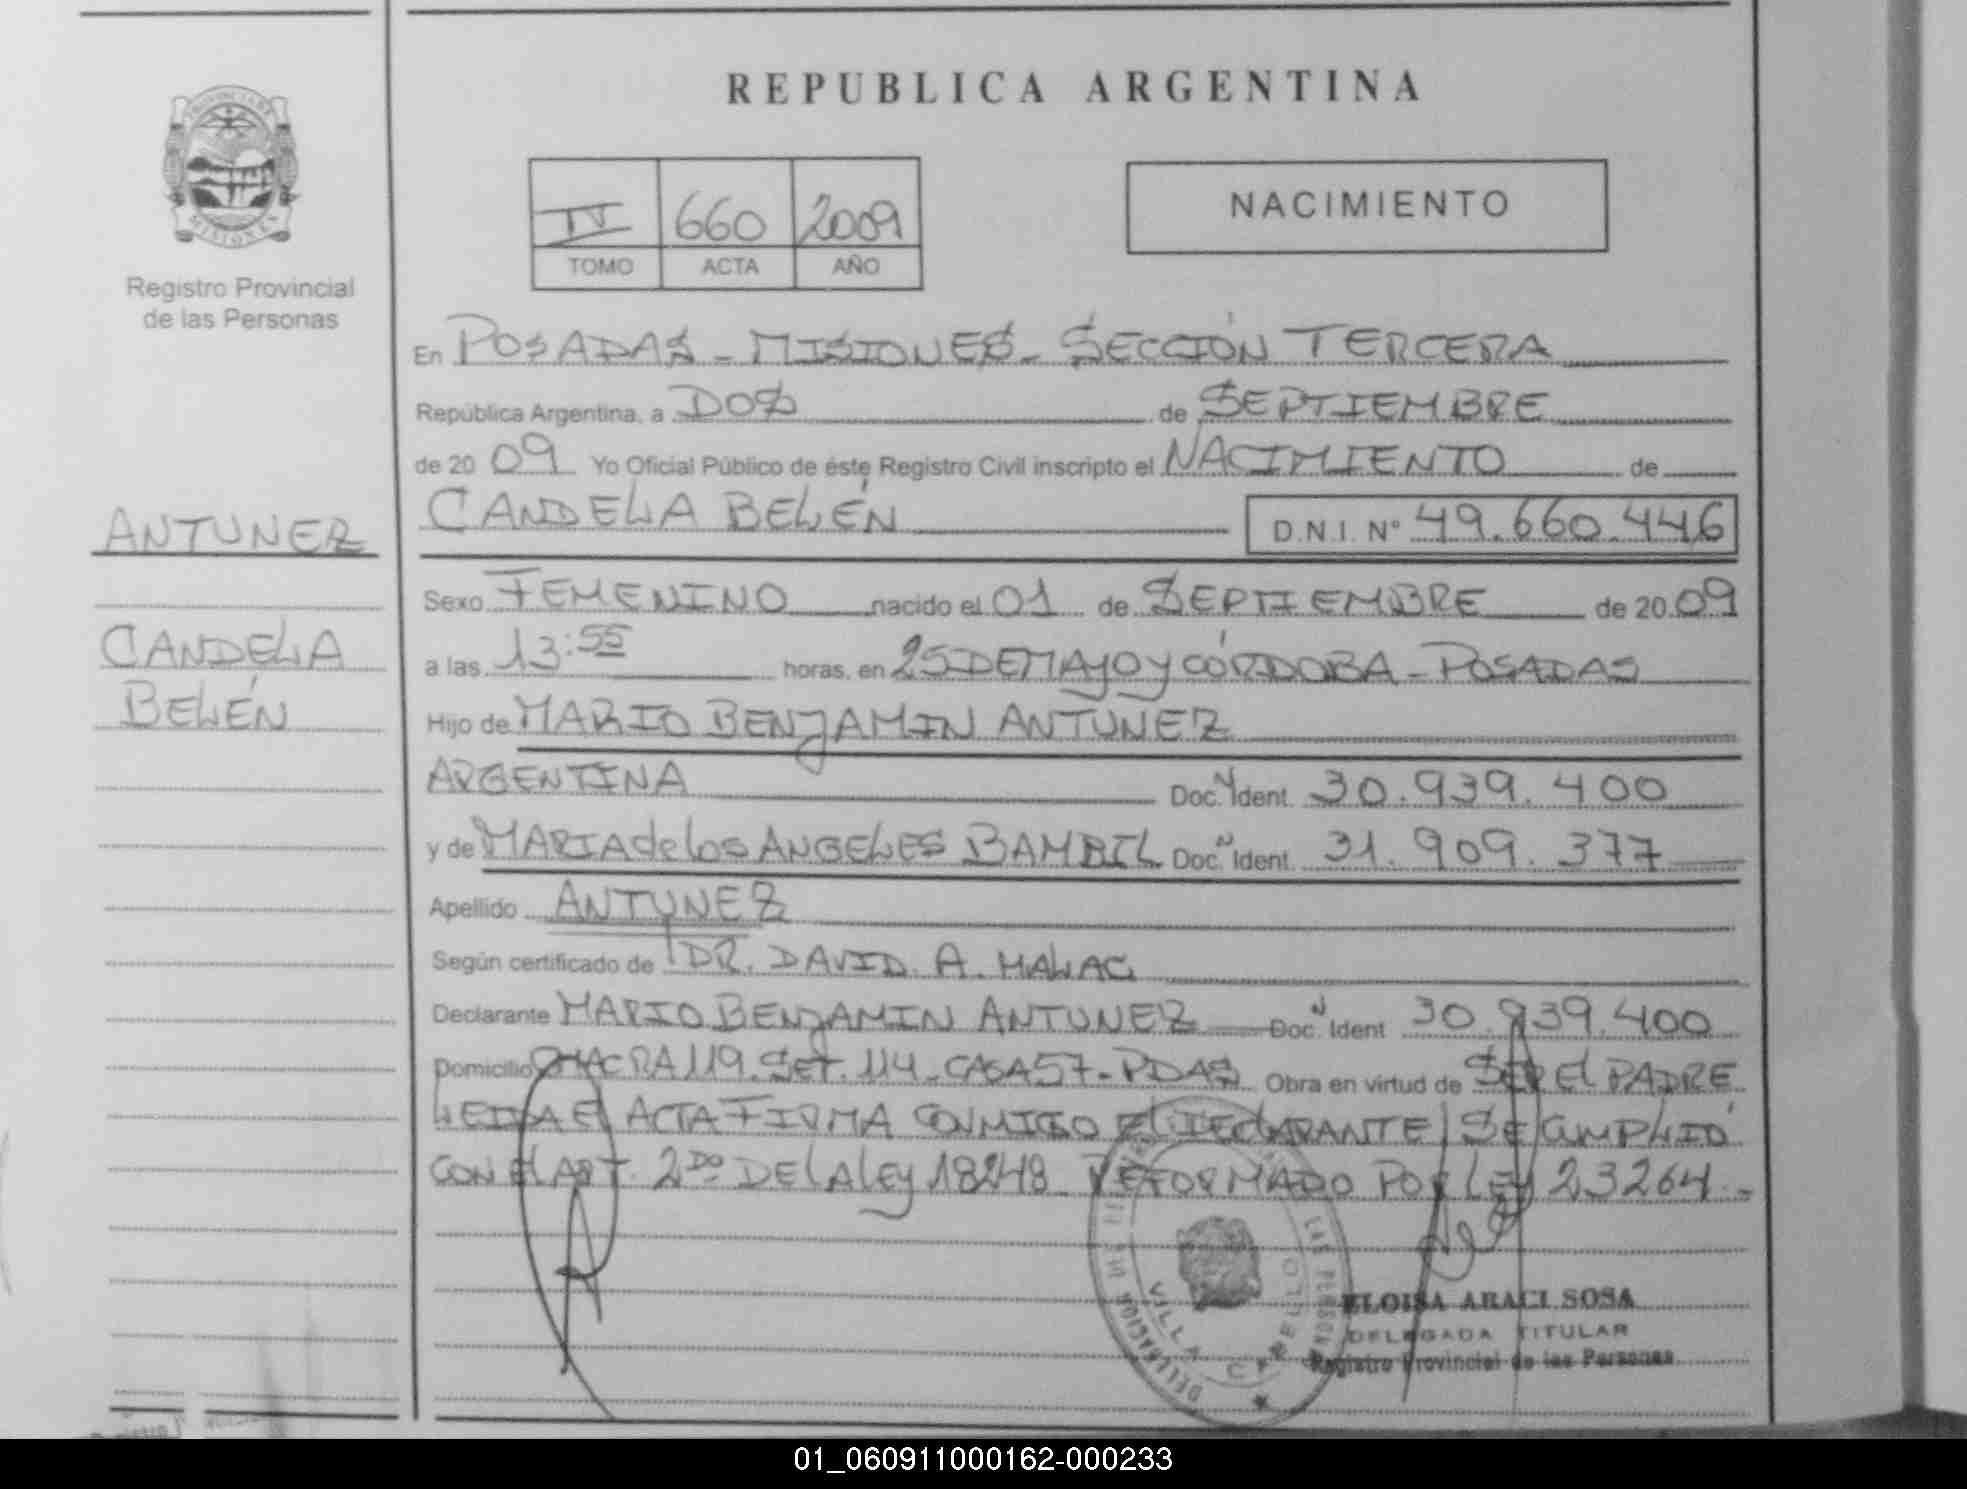 REPUBLICA ARGENTINA
PROVINCIA DE
MISIONES
Registro Provincial
de las Personas
IV 660 2009
TOMO ACTA AÑO
NACIMIENTO
En POSADAS - MISIONES - SECCIÓN TERCERA
República Argentina, a DOS de SEPTIEMBRE
de 20 09 Yo Oficial Público de éste Registro Civil inscripto el NACIMIENTO de
ANTUNEZ
CANDELA BELÉN D.N.I. Nº 49.660.446
Sexo FEMENINO nacido el 01 de SEPTIEMBRE de 20 09
CANDELA
BELÉN
a las 13:55 horas, en 25 DE MAYO y CÓRDOBA - POSADAS
Hijo de MARIO BENJAMIN ANTUNEZ
ARGENTINA Doc. N Ident. 30.939.400
y de MARIA de los ANGELES BAMBIL Doc. N Ident. 31.909.377
Apellido ANTUNEZ
Según certificado de DR. DAVID A.
Declarante MARIO BENJAMIN ANTUNEZ Doc. N Ident 30.939.400
Domicilio CHACRA 119. SET. 114 - CASA 57 - PDAS Obra en virtud de SER El PADRE
LEIDA El ACTA FIRMA CONMIGO El DEClARANTE / SE CUMPLIÓ
CON El ART. 2DO DE lA lEy 18248 REFORMADO POR LEY 23264.-
VILLA CABELLO
ELOISA ARACI SOSA
DELEGADA TITULAR
Registro Provincial de las Personas
01_060911000162-000233